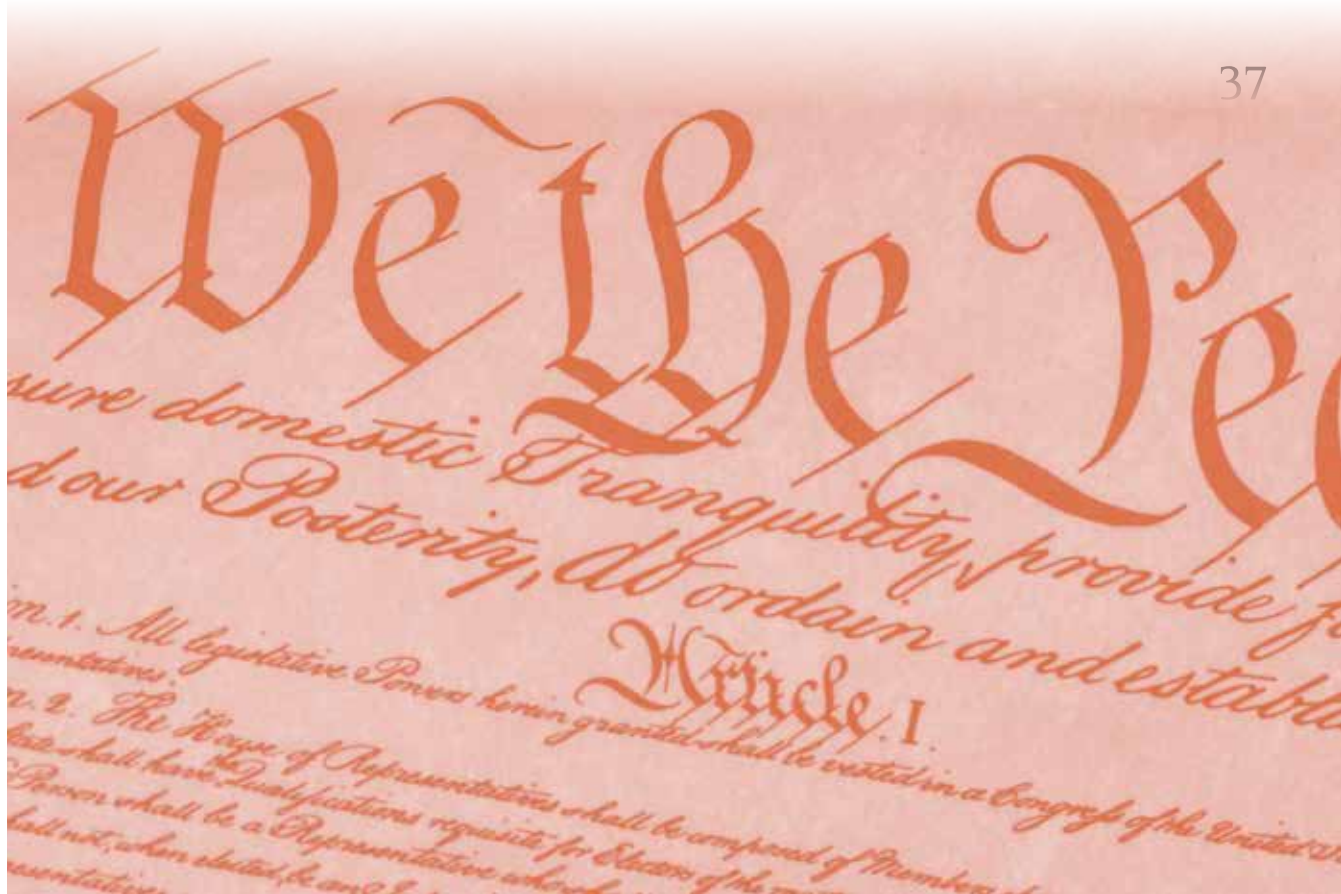 37
We the Pe
sure domestic Tranquility, provide f
d our Posterity, do ordain and establi
Article. I.
n. 1. All legislative Powers herein granted shall be vested in a Congress of the United S
resentatives.
n. 2. The House of Representatives shall be composed of Members
shall have the Qualifications requisite for Electors of the
Person shall be a Representative who
shall not, when elected, be an